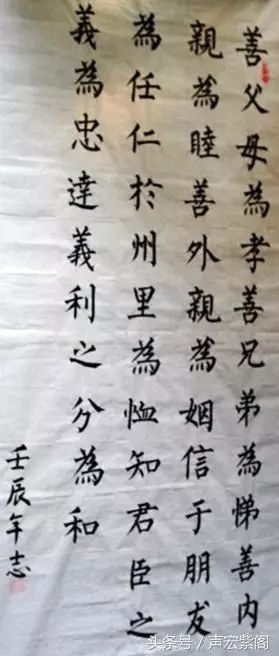 善父母為孝善兄弟為悌善内
親為睦善外親為姻信于朋友
為任仁於州里為恤知君臣之
義為忠達義利之分為和
壬辰年志
头条号／声宏紫阁